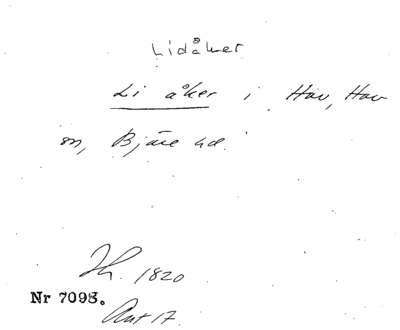 Lidåker
Li åker i Hov, Hov
sn, Bjäre hd.
Lh. 1820
Nr 7098.
Akt 17.